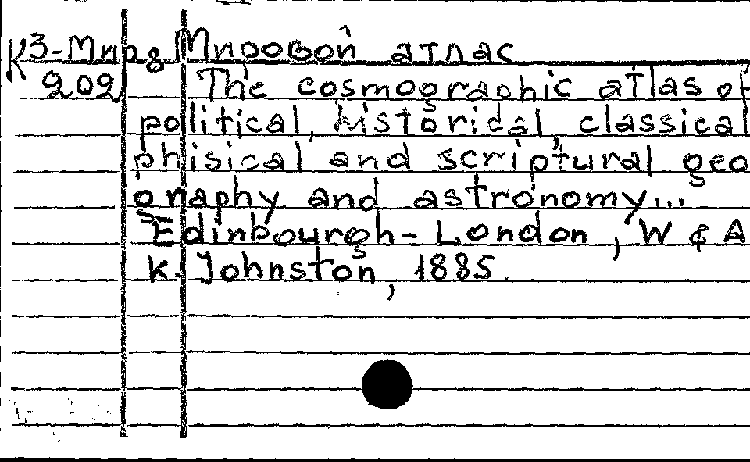 К3-Мир8 Мировой атлас
202 The cosmographic atlas of
political, historical, classical
phisical and scriptural geo
graphy and astronomy...
Edinbourgh - London, W & A
K. Johnston, 1885.